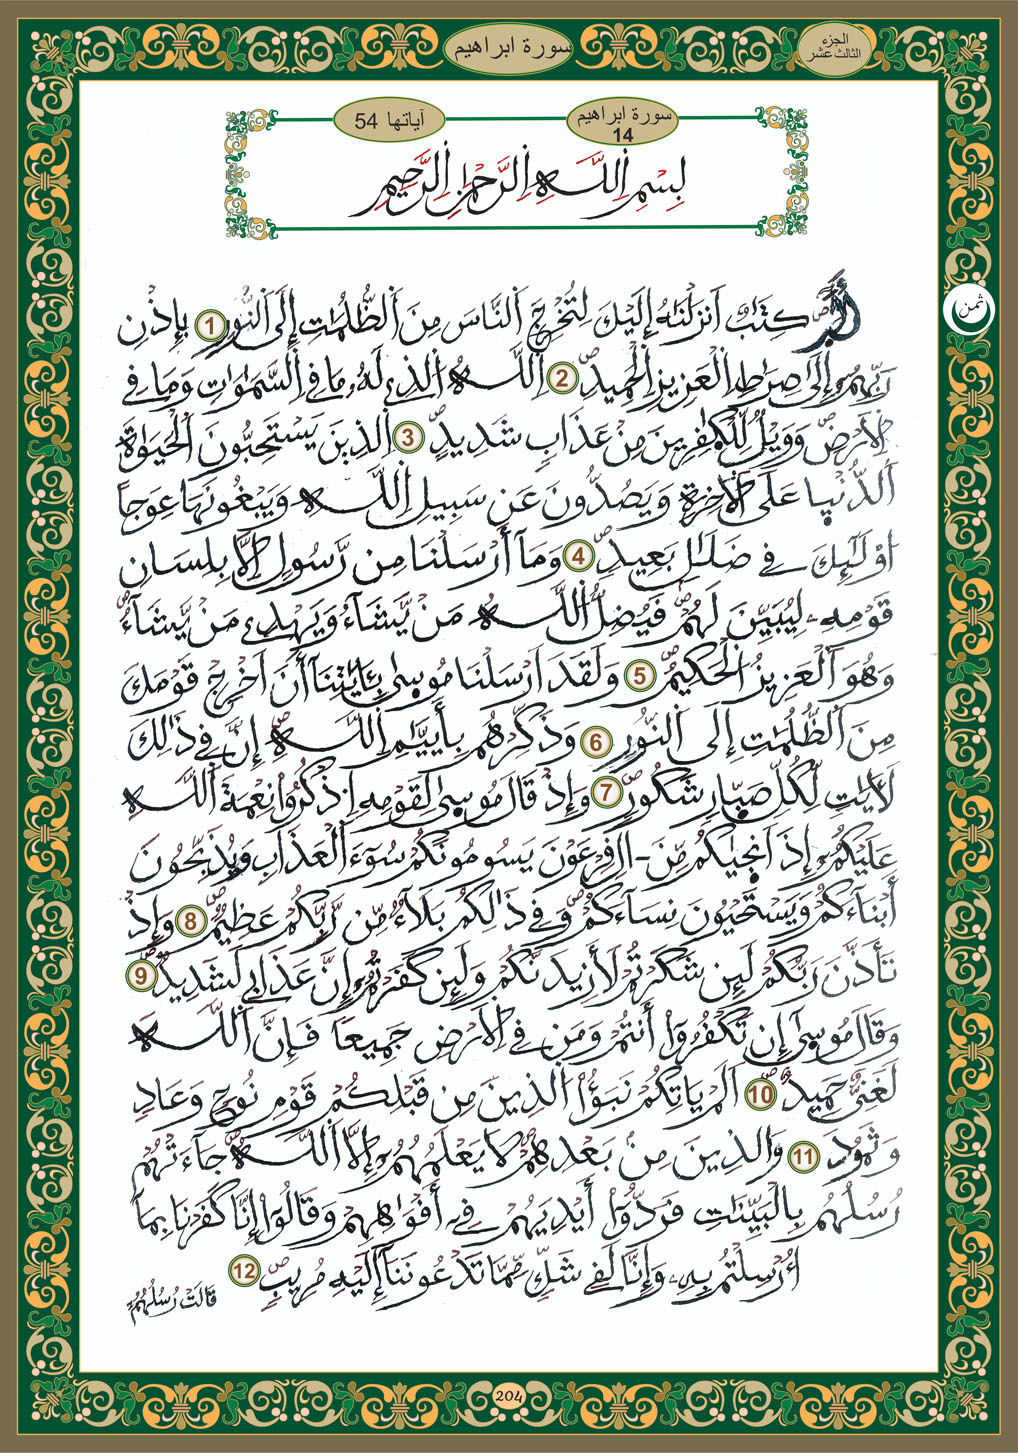 سورة ابراهيم
الجزء
الثالث عشر
سورة ابراهيم
14
آياتها 54
بِسْمِ اِللَّهِ اِلرَّحْمَٰنِ اِلرَّحِيمِ
ثمن
أَلَٓرۖ كِتَٰبٌ اَنزَلْنَٰهُ إِلَيْكَ لِتُخْرِجَ اَلنَّاسَ مِنَ اَلظُّلُمَٰتِ إِلَى اَلنُّورِ 1 بِإِذْنِ
رَبِّهِمُۥٓ إِلَىٰ صِرَٰطِ اِلْعَزِيزِ اِلْحَمِيدِۖ 2 اِللَّهِ اِلذِے لَهُۥ مَا فِے اِلسَّمَٰوَٰتِ وَمَا فِے
اِلْأَرْضِۖ وَوَيْلٌ لِّلْكٰ۪فِرِينَ مِنْ عَذَابٍ شَدِيدٍۖ 3 اِلذِينَ يَسْتَحِبُّونَ اَلْحَيَوٰةَ
اَلدُّنْي۪ا عَلَى اَلْأَخِرَةِ وَيَصُدُّونَ عَن سَبِيلِ اِللَّهِ وَيَبْغُونَهَا عِوَجاً
اُوْلَٰٓئِكَ فِے ضَلَٰلِۢ بَعِيدٍۖ 4 وَمَآ أَرْسَلْنَا مِن رَّسُولٍ اِلَّا بِلِسَانِ
قَوْمِهِۦ لِيُبَيِّنَ لَهُمْۖ فَيُضِلُّ اُللَّهُ مَنْ يَّشَآءُ وَيَهْدِے مَنْ يَّشَآءُۖ
وَهُوَ اَلْعَزِيزُ اُلْحَكِيمُۖ 5 وَلَقَدَ اَرْسَلْنَا مُوس۪ىٰ بِـَٔايَٰتِنَآ أَنَ اَخْرِجْ قَوْمَكَ
مِنَ اَلظُّلُمَٰتِ إِلَى اَلنُّورِ 6 وَذَكِّرْهُم بِأَيَّيٰمِ اِللَّهِۖ إِنَّ فِے ذَٰلِكَ
لَأٓيَٰتٍ لِّكُلِّ صَبّ۪ارٍ شَكُورٍۖ 7 وَإِذْ قَالَ مُوس۪ىٰ لِقَوْمِهِ اِذْكُرُواْ نِعْمَةَ اَللَّهِ
عَلَيْكُمُۥٓ إِذَ اَنج۪يٰكُم مِّنَ اٰلِ فِرْعَوْنَ يَسُومُونَكُمْ سُوٓءَ اَلْعَذَابِ وَيُذَبِّحُونَ
أَبْنَآءَكُمْ وَيَسْتَحْيُونَ نِسَآءَكُمْۖ وَفِے ذَٰلِكُم بَلَآءٌ مِّن رَّبِّكُمْ عَظِيمٌۖ 8 وَإِذْ
تَأَذَّنَ رَبُّكُمْ لَئِن شَكَرْتُمْ لَأَزِيدَنَّكُمْ وَلَئِن كَفَرْتُمُۥٓ إِنَّ عَذَابِے لَشَدِيدٌۖ 9
وَقَالَ مُوس۪ىٰٓ إِن تَكْفُرُوٓاْ أَنتُمْ وَمَن فِے اِلْأَرْضِ جَمِيعاً فَإِنَّ اَللَّهَ
لَغَنِيٌّ حَمِيدٌۖ 10 اَلَمْ يَاتِكُمْ نَبَؤُاْ اُلذِينَ مِن قَبْلِكُمْ قَوْمِ نُوحٍ وَعَادٍ
وَثَمُودَ 11 وَالذِينَ مِنۢ بَعْدِهِمْۖ لَا يَعْلَمُهُمُۥٓ إِلَّا اَللَّهُۖ جَآءَتْهُمْ
رُسُلُهُم بِالْبَيِّنَٰتِ فَرَدُّوٓاْ أَيْدِيَهُمْ فِےٓ أَفْوَٰهِهِمْ وَقَالُوٓاْ إِنَّا كَفَرْنَا بِمَآ
أُرْسِلْتُم بِهِۦ وَإِنَّا لَفِے شَكٍّ مِّمَّا تَدْعُونَنَآ إِلَيْهِ مُرِيبٍۖ 12
قَالَتْ رُسُلُهُمُۥٓ
204